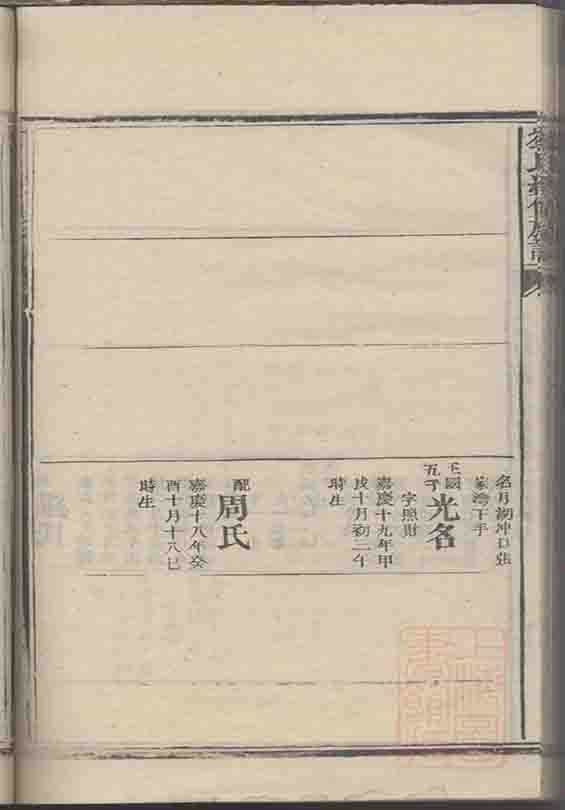 名月湖冲口張
家灣下手
玉國
五子
光名
字照財
嘉慶十九年甲
戌十月初二午
時生
配
周氏
嘉慶十八年癸
酉十月十八巳
時生